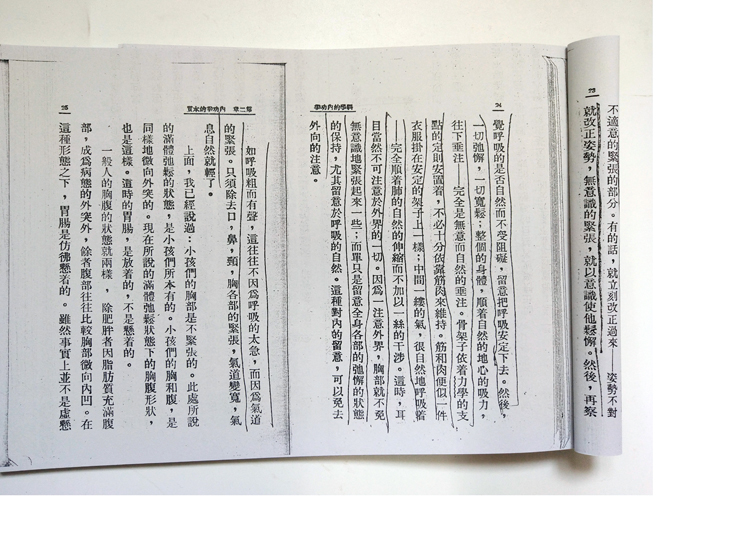 23
不適意的緊張的部分。有的話，就立刻改正過來——姿勢不對
就改正姿勢，無意識的緊張，就以意識使他鬆懈。然後，再察
24
科學的內功拳
覺呼吸的是否自然而不受阻礙，留意把呼吸安定下去。然後，
一切弛懈，一切寬鬆；整個的身體，順着自然的地心的吸力，
往下垂注——完全是無意而自然的垂注。骨架子依着力學的支
點的定則安置着，不必十分依靠筋肉來維持。筋和肉便似一件
衣服掛在安定的架子上一樣；中間一縷的氣，很自然地呼吸着
——完全順着肺的自然的伸縮而不加以一絲的干涉。這時，耳
目當然不可注意於外界的一切。因為一注意外界，胸部就不免
無意識地緊張起來一些；而單只是留意全身各部的弛懈的狀態
的保持，尤其留意於呼吸的自然。這種對內的留意，可以免去
外向的注意。
第二章 內功拳的本質
25
如呼吸粗而有聲，這往往不因爲呼吸的太急，而因爲氣道
的緊張。只須除去口，鼻，頸，胸各部的緊張，氣道變寬，氣
息自然就輕了。
上面，我已經說過：小孩們的胸部是不緊張的。此處所說
的滿體弛鬆的狀態，是小孩們所本有的。小孩們的胸和腹，是
同樣地微向外突的。現在所說的滿體弛鬆狀態下的胸腹形狀，
也是這樣。這時的胃腸，是放着的，不是懸着的。
一般人的胸腹的狀態就兩樣，除肥胖者因脂肪質充滿腹
部，成爲病態的外突外，餘者腹部往往比較胸部微向內凹。在
這種形態之下，胃腸是仿彿懸着的。雖然事實上並不是虛懸